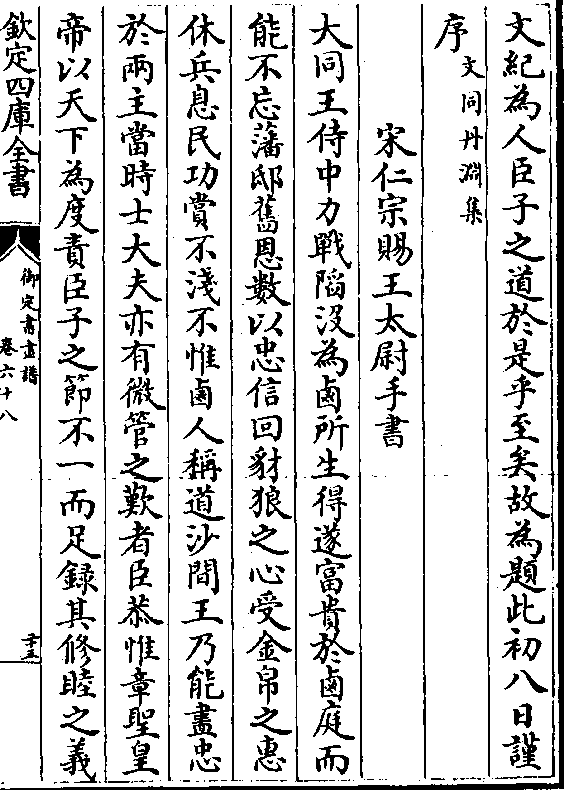 文紀為人臣子之道於是乎至矣故為題此初八日謹
序文同丹淵集
宋仁宗賜王太尉手書
大同王侍中力戰䧟没為鹵所生得遂富貴於鹵庭而
能不忘藩邸舊恩數以忠信回豺狼之心受金帛之惠
休兵息民功賞不淺不惟鹵人稱道沙間王乃能盡忠
於兩主當時士大夫亦有微管之歎者臣恭惟章聖皇
帝以天下為度責臣子之節不一而足録其修睦之義
欽定四庫全書
御定書畫譜
卷六十八
二十五